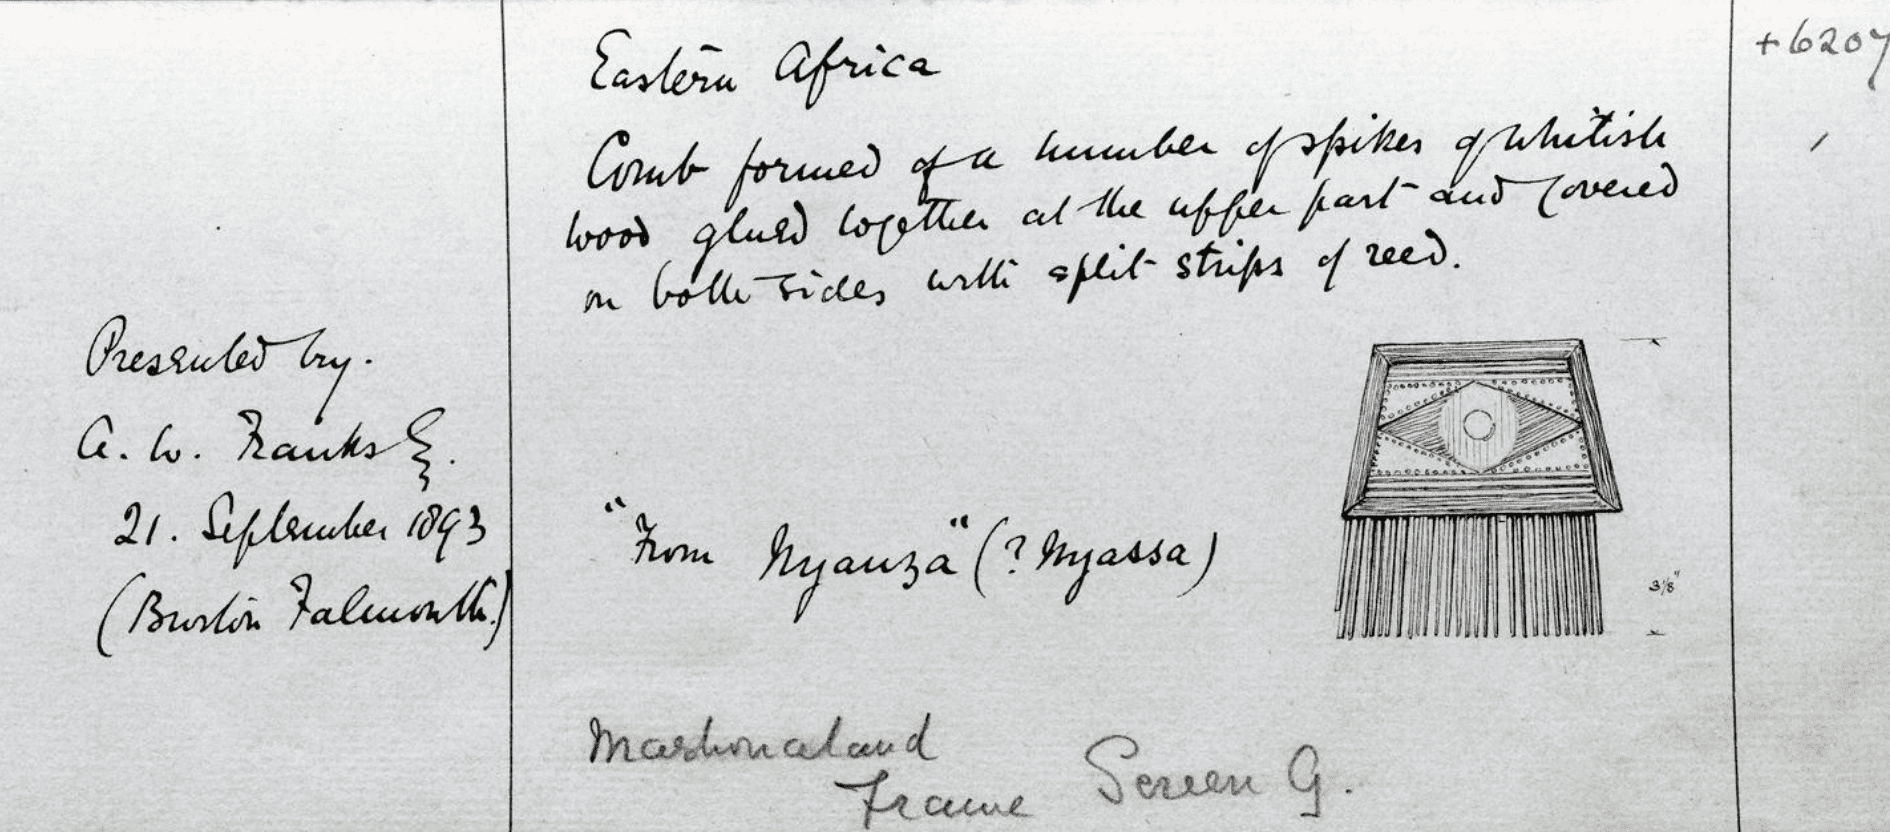 Eastern Africa
+6207
Comb formed of a number of spikes of whitish
wood glued together at the upper part and covered
on both sides with split strips of reed.
Presented by.
A. W. Franks E.
21. September 1893
(Burton Falmouth.)
"From Nyanza" (? Nyassa)
3 1/8"
Mashonaland
Frame Screen G.